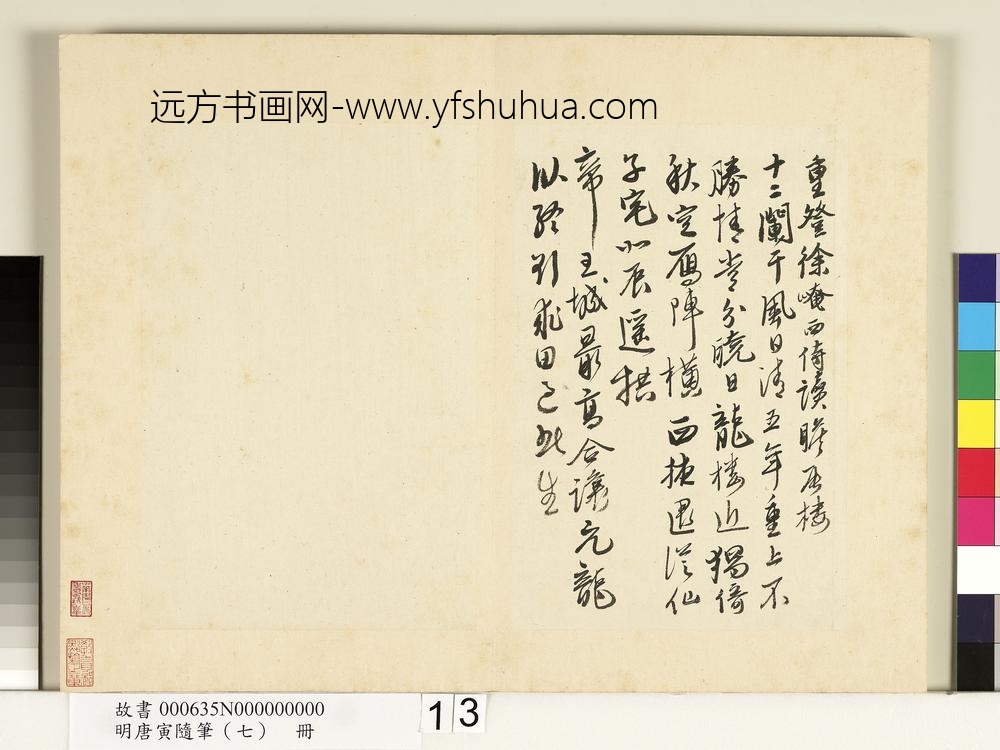 远方书画网-www.yfshuhua.com
重登徐崦西侍讀瞻辰樓
十二闌干風日清五年重上不
勝情常分曉日龍樓近獨倚
秋空鴈陣橫西掖退從仙
子宅北辰遥拱
帝王城最高合讓元龍
臥終引求田己此生
故書 000635N000000000
明唐寅隨筆（七） 冊
13